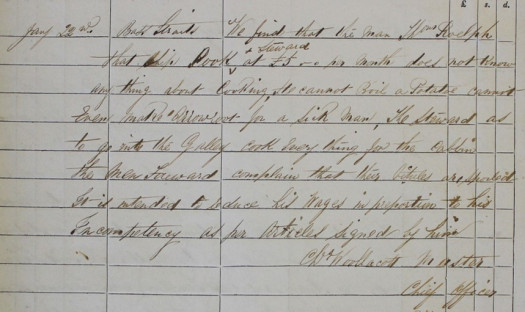 £ s. d.
Jany 22nd. Bass Straits We find that the man Thos Ralph
& Steward
that Ship Cook at £5 .. o per month does not know
any thing about Cooking, He cannot Boil a Potatoe cannot
Even make Arrowroot for a Sick Man, The Steward as
to go into the Galley cook every thing for the cabbin
the Men Forward complain that their vitules are spoiled
It is intended to reduce his Wages in proportion to his
Incompetency as per Articles Signed by him
Woollacott Master
Chief Officer